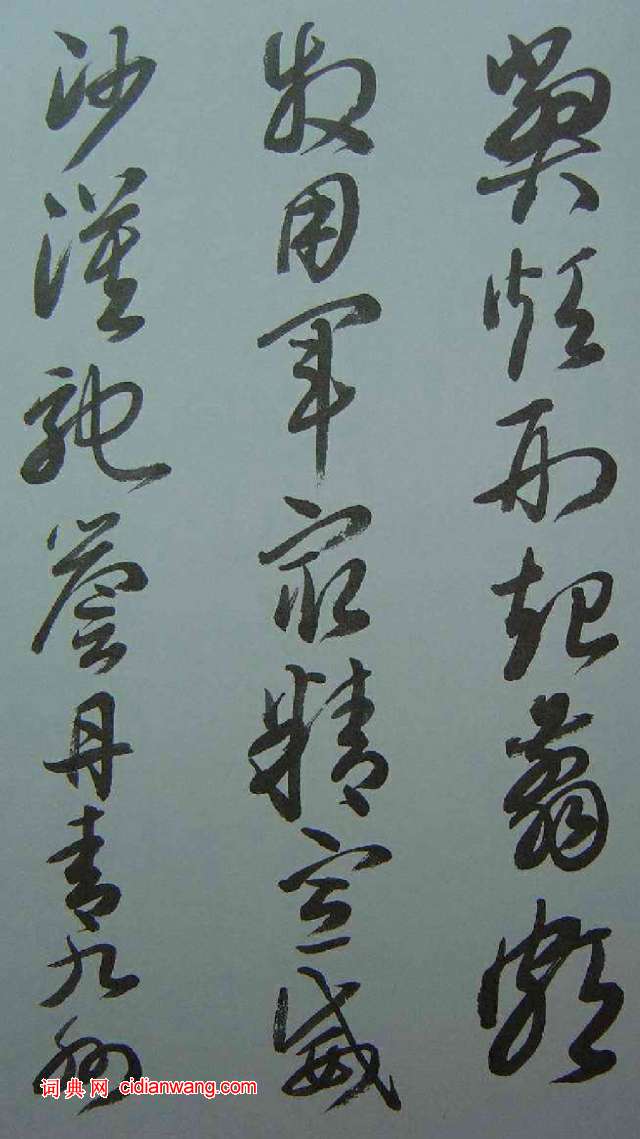 弊煩刑起翦頗
牧用軍最精宣威
沙漠馳譽丹青九州
词典网 cidianwang.com